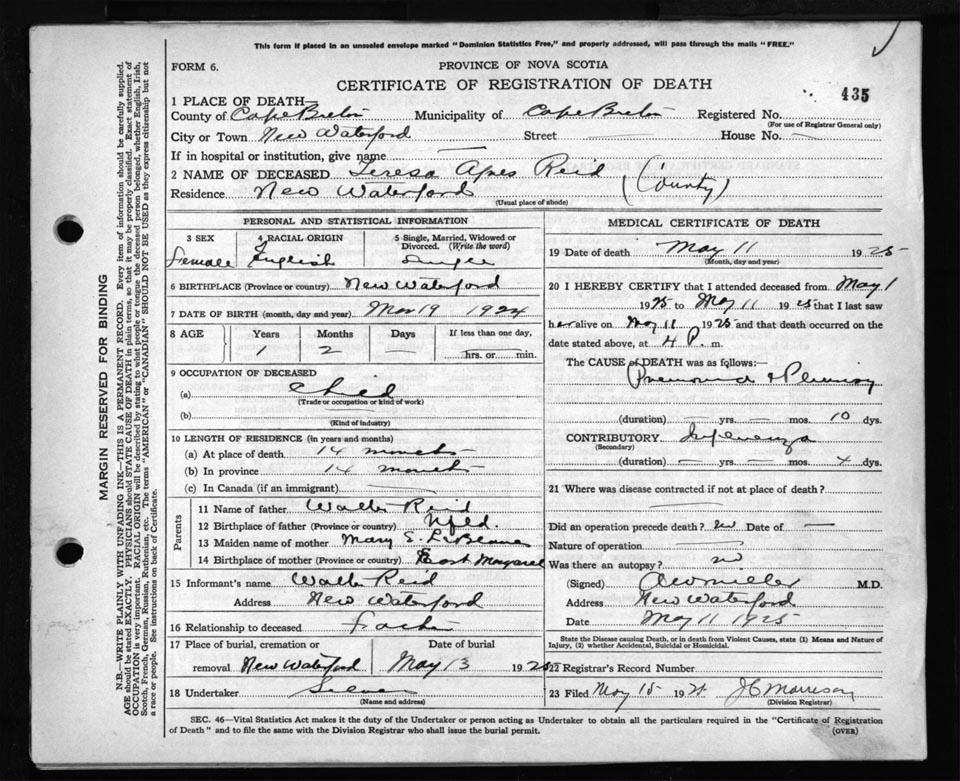 This form if placed in an unsealed envelope marked "Dominion Statistics Free," and properly addressed, will pass through the mails "FREE."
FORM 6.
PROVINCE OF NOVA SCOTIA
CERTIFICATE OF REGISTRATION OF DEATH
435
1 PLACE OF DEATH—
County of Cape Breton Municipality of Cape Breton Registered No.
(For use of Registrar General only)
City or Town New Waterford Street — House No. —
If in hospital or institution, give name —
2 NAME OF DECEASED Teresa Agnes Reid
Residence New Waterford (County)
(Usual place of abode)
PERSONAL AND STATISTICAL INFORMATION
3 SEX 4 RACIAL ORIGIN 5 Single, Married, Widowed or Divorced. (Write the word)
Female English Single
6 BIRTHPLACE (Province or country) New Waterford
7 DATE OF BIRTH (month, day and year) Mar 19 1924
8 AGE Years Months Days If less than one day,
1 2 — hrs. or min.
9 OCCUPATION OF DECEASED
(a) Child
(Trade or occupation or kind of work)
(b)
(Kind of industry)
10 LENGTH OF RESIDENCE (in years and months)
(a) At place of death 14 months
(b) In province 14 months
(c) In Canada (if an immigrant)
Parents
11 Name of father Walter Reid
12 Birthplace of father (Province or country) Nfld.
13 Maiden name of mother Mary E.
14 Birthplace of mother (Province or country) East Margaree
15 Informant's name Walter Reid
Address New Waterford
16 Relationship to deceased Father
17 Place of burial, cremation or removal New Waterford Date of burial May 13 1925
18 Undertaker
(Name and address)
MEDICAL CERTIFICATE OF DEATH
19 Date of death May 11 1925
(Month, day and year)
20 I HEREBY CERTIFY that I attended deceased from May 1
1925 to May 11 1925 that I last saw
her alive on May 11 1925 and that death occurred on the
date stated above, at 4 P. m.
The CAUSE of DEATH was as follows:—
Pneumonia & Pleurisy
(duration) — yrs. — mos. 10 dys.
CONTRIBUTORY Influenza
(Secondary)
(duration) — yrs. — mos. 4 dys.
21 Where was disease contracted if not at place of death?
Did an operation precede death? no Date of —
Nature of operation
Was there an autopsy? no
(Signed) M.D.
Address New Waterford
Date May 11 1925
State the Disease causing Death, or in death from Violent Causes, state (1) Means and Nature of Injury, (2) whether Accidental, Suicidal or Homicidal.
22 Registrar's Record Number
23 Filed May 15 192 J C Morrison
(Division Registrar)
SEC. 46—Vital Statistics Act makes it the duty of the Undertaker or person acting as Undertaker to obtain all the particulars required in the "Certificate of Registration
of Death" and to file the same with the Division Registrar who shall issue the burial permit.
(OVER)
MARGIN RESERVED FOR BINDING
N.B.—WRITE PLAINLY WITH UNFADING INK—THIS IS A PERMANENT RECORD. Every item of information should be carefully supplied.
AGE should be stated EXACTLY. PHYSICIANS should STATE CAUSE OF DEATH in plain terms, so that it may be properly classified. Exact statement of
OCCUPATION is very important. RACIAL ORIGIN will be described by stating to what people or tongue the deceased person belonged, whether English, Irish,
Scotch, French, German, Russian, Ruthenian, etc. The terms "AMERICAN" or "CANADIAN" SHOULD NOT BE USED as they express citizenship but not
a race or people. See instructions on back of Certificate.